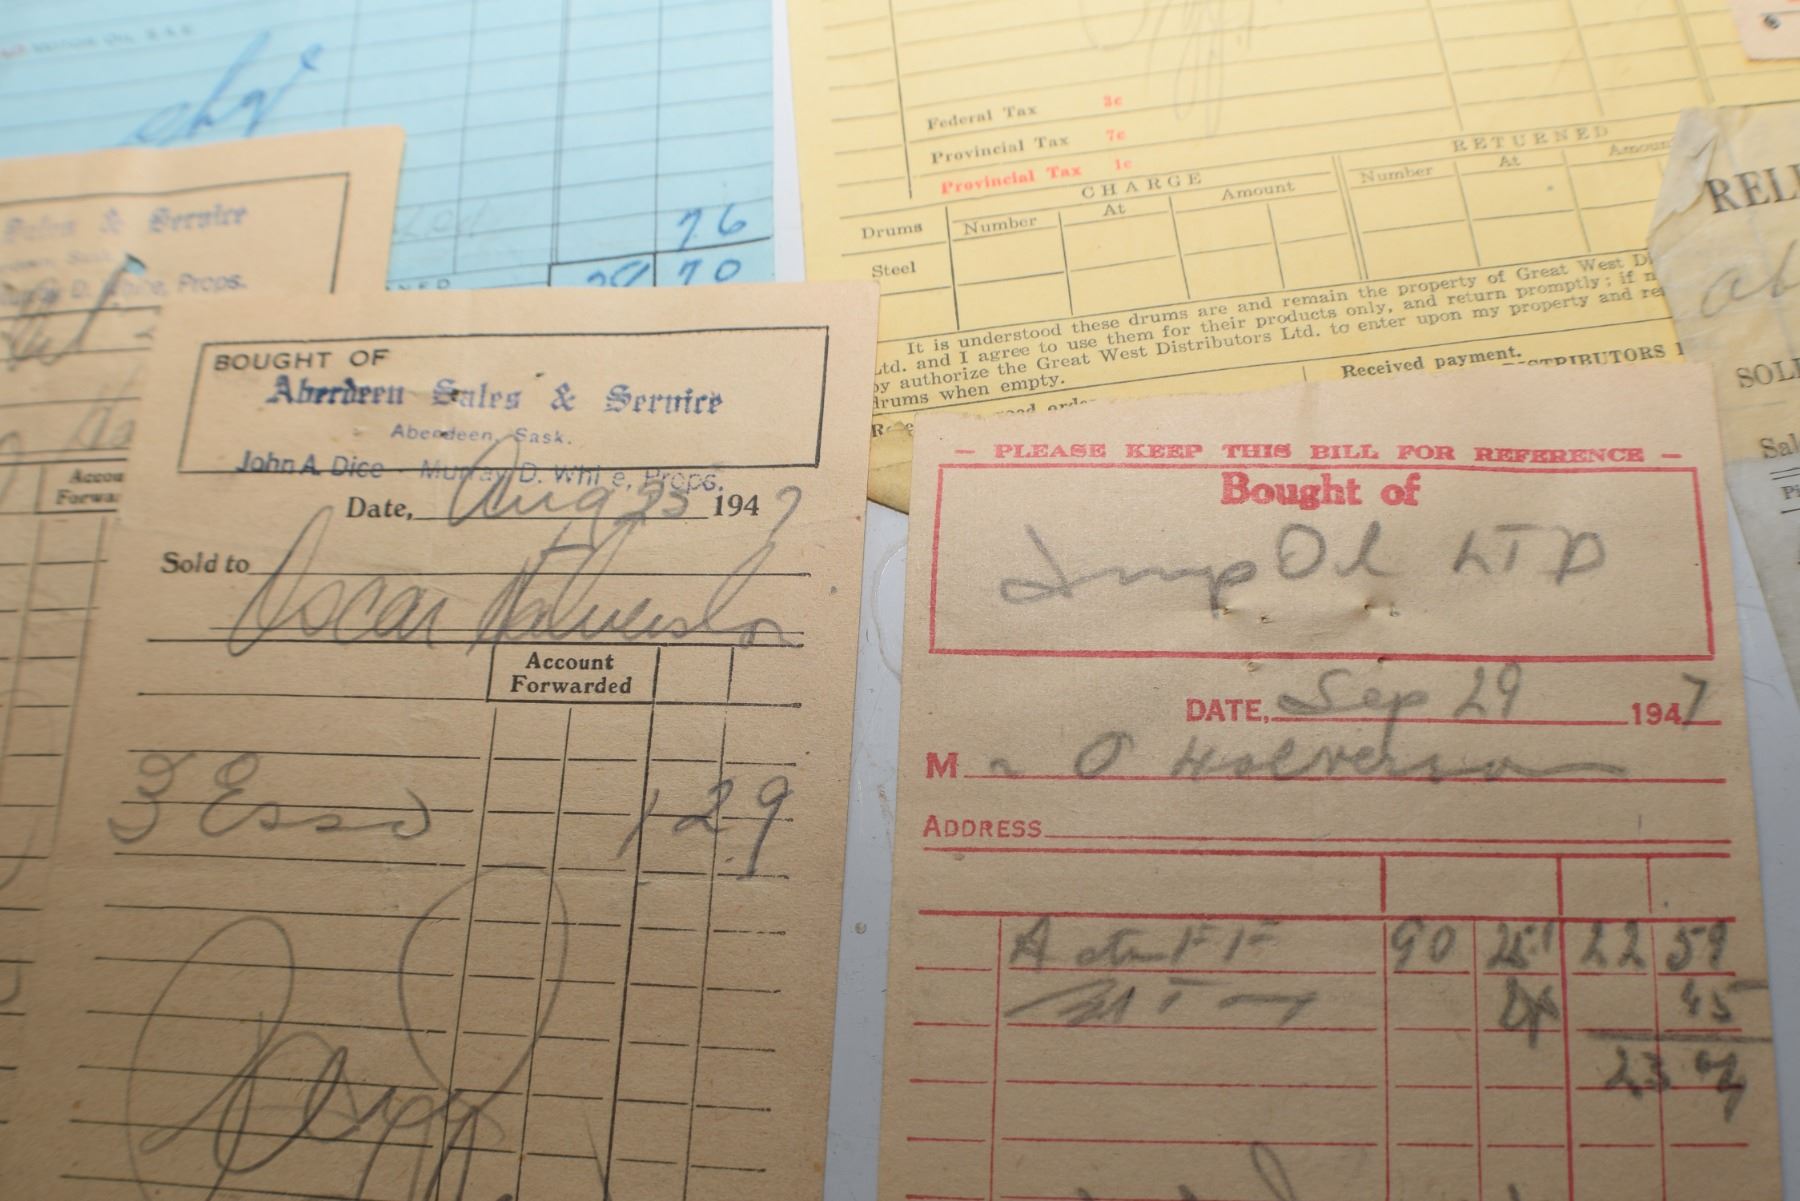 76
28 70
Federal Tax 3c
Provincial Tax 7c
Provincial Tax 1c
CHARGE
RETURNED
Drums Number At Amount Number At Amoun
Steel
It is understood these drums are and remain the property of Great West Di
Ltd. and I agree to use them for their products only, and return promptly; if n
by authorize the Great West Distributors Ltd. to enter upon my property and re
drums when empty.
Received payment.
STRIBUTORS
REL
SOL
Sal
Sales & Service
D. White, Props.
Accou
Forwa
BOUGHT OF
Aberdeen Sales & Service
Aberdeen, Sask.
John A. Dice Murray D. White, Props.
Date, Aug 23 1947
Sold to
Oscar Halverson
Account
Forwarded
3 Esso 1 29
— PLEASE KEEP THIS BILL FOR REFERENCE —
Bought of
Imp Oil LTD
DATE, Sep 29 1947
M O Halverson
ADDRESS
90 25 22 59
45
23 04